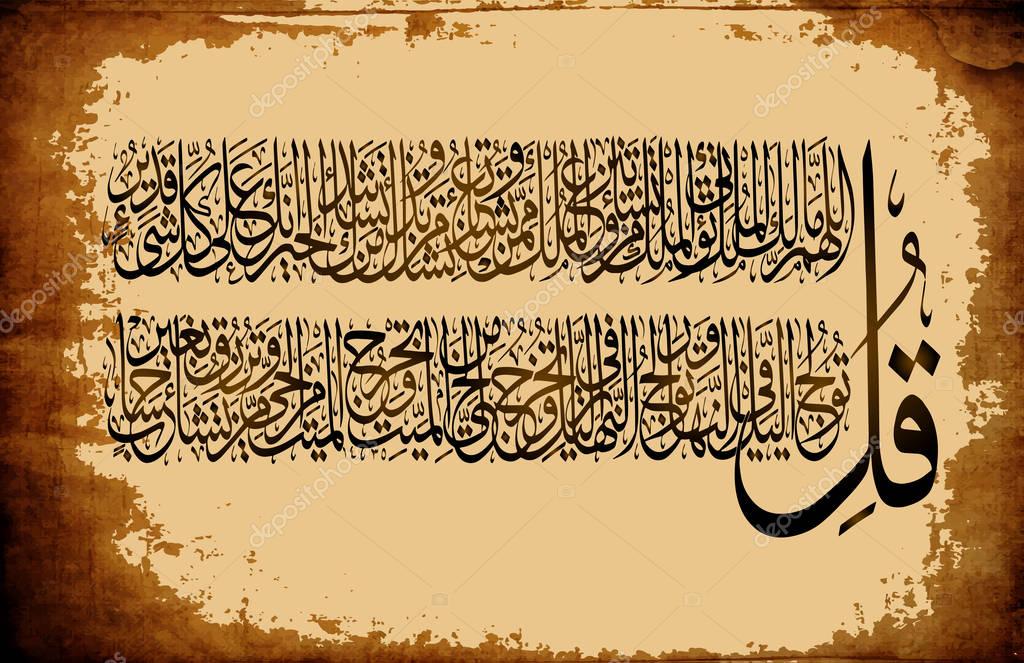 قُلِ
اللهم مالك الملك تؤتي الملك من تشاء وتنزع الملك ممن تشاء وتعز من تشاء وتذل من تشاء بيدك الخير إنك على كل شيء قدير
تولج الليل في النهار وتولج النهار في الليل وتخرج الحي من الميت وتخرج الميت من الحي وترزق من تشاء بغير حساب
١٤٣٥
depositphotos